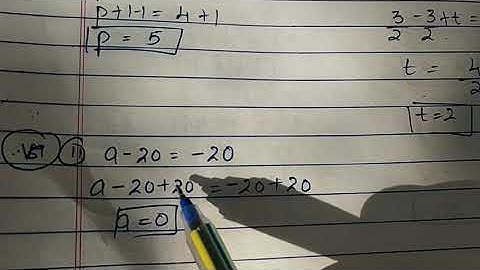 p+1-1 = 4+1
p = 5
3/2 - 3/2 + t =
t = 4/2
t = 2
11) a - 20 = -20
a - 20 + 20 = -20 + 20
a = 0